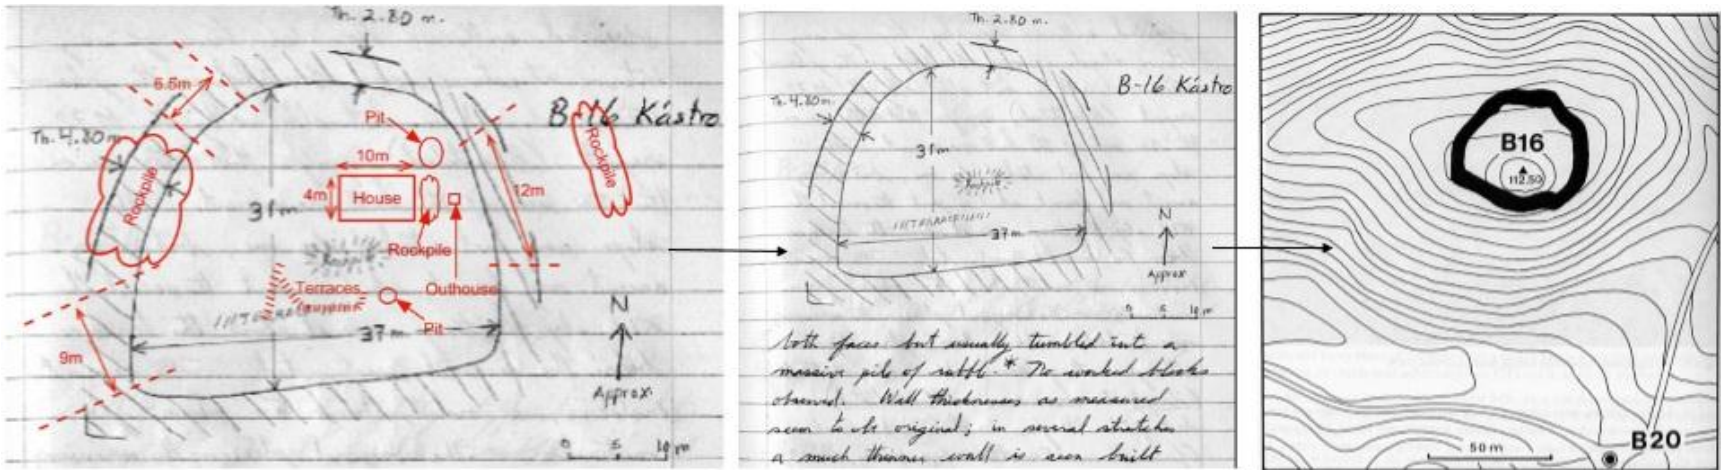 Th. 2.80 m.
6.5m
B-16 Kástro
Th. 4.80m
Pit
Rockpile
10m
Rockpile
4m
House
12m
31m
Rockpile
Rockpile
Terraces
Outhouse
N
37m
Pit
9m
Approx.
0 5 10 m
Th. 2.80 m.
B-16 Kástro
Th. 4.80m
31m
Rockpile
N
37m
Approx
0 5 10 m
both faces but usually tumbled into a
massive pile of rubble.* No worked blocks
observed. Wall thicknesses as measured
seem to be original; in several stretches
a much thinner wall is seen built
B16
112.50
50 m
B20